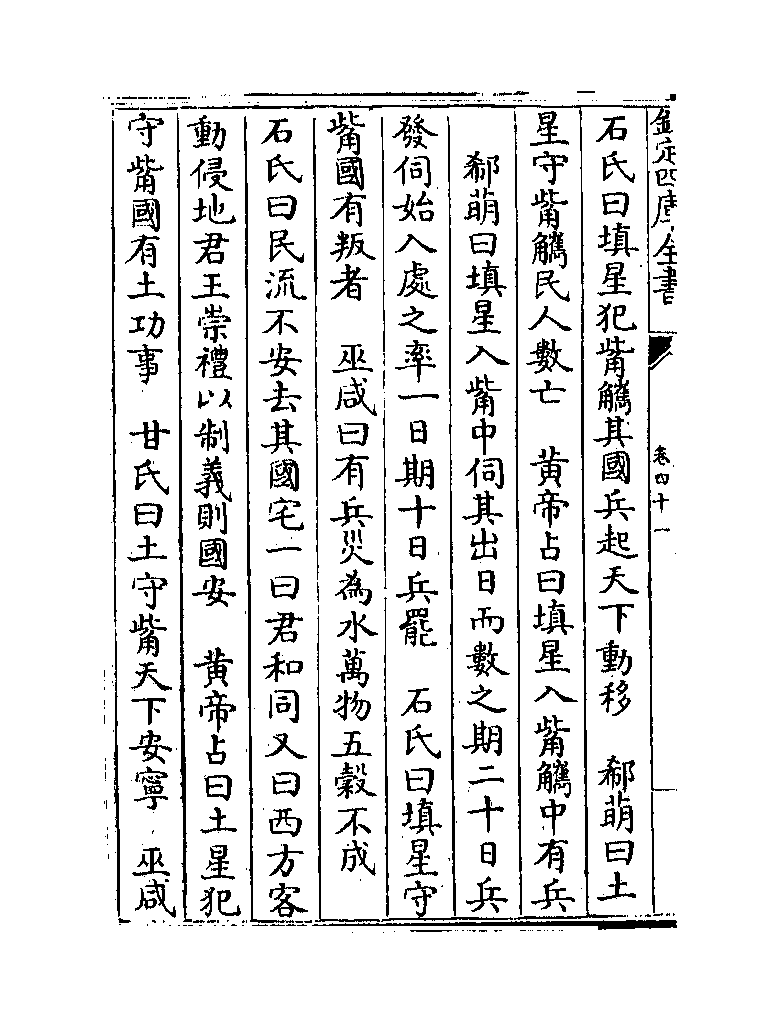 欽定四庫全書
卷四十一
石氏曰填星犯觜觿其國兵起天下動移　郗萌曰土
星守觜觿民人數亡　黄帝占曰填星入觜觿中有兵
郗萌曰填星入觜中伺其出日而數之期二十日兵
發伺始入處之率一日期十日兵罷　石氏曰填星守
觜國有叛者　巫咸曰有兵災為水萬物五穀不成
石氏曰民流不安去其國宅一曰君和同又曰西方客
動侵地君王崇禮以制義則國安　黄帝占曰土星犯
守觜國有土功事　甘氏曰土守觜天下安寧　巫咸